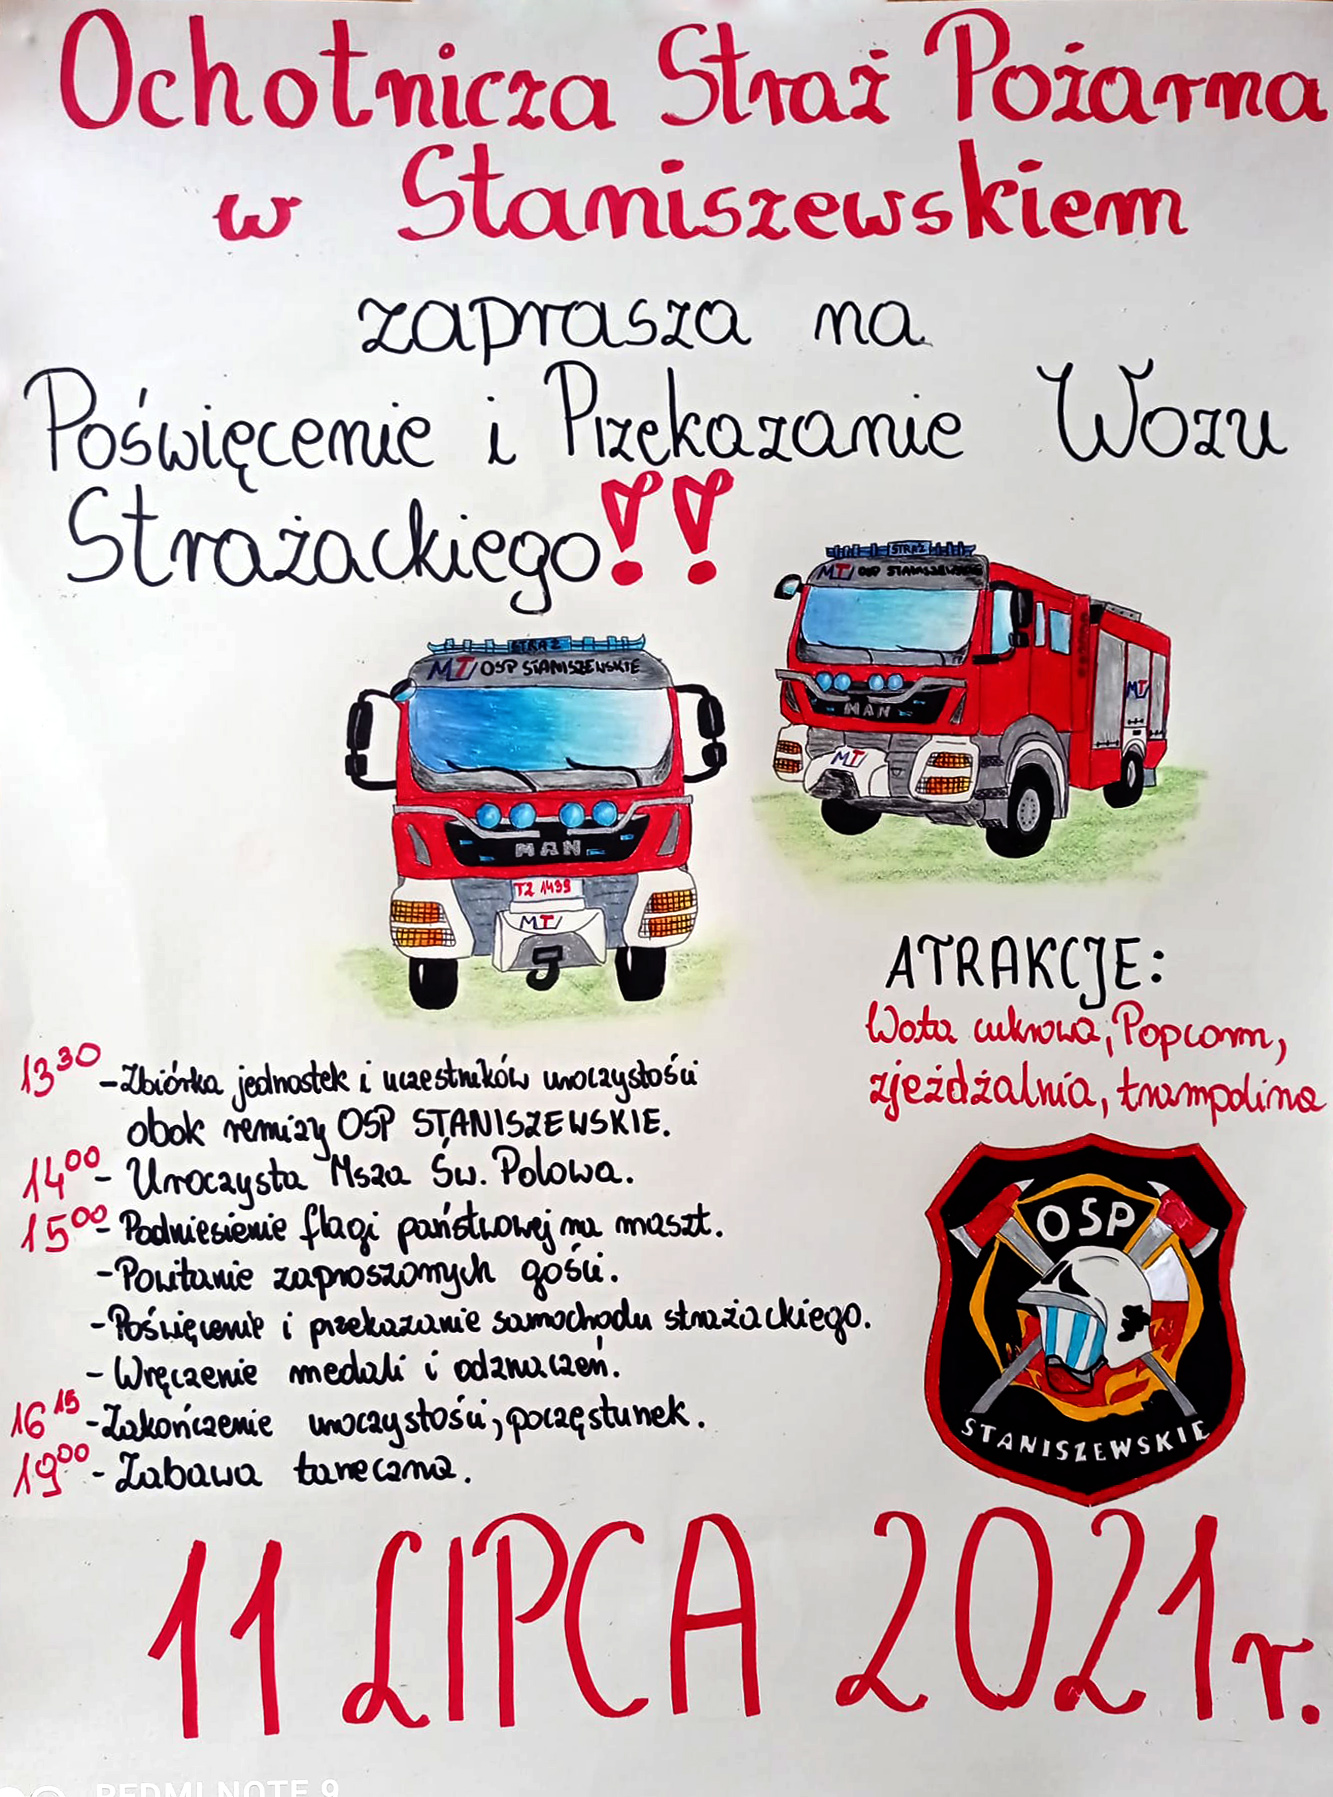 Ochotnicza Straż Pożarna
w Staniszewskiem
zaprasza na
Poświęcenie i Przekazanie Wozu
Strażackiego!!
STRAŻ
MT/ OSP STANISZEWSKIE
MAN
MT/
MT/
STRAŻ
MT/ OSP STANISZEWSKIE
MAN
TZ 1499
MT/
ATRAKCJE:
Wata cukrowa, Popcorn,
zjeżdżalnia, trampolina
13 30 - Zbiórka jednostek i uczestników uroczystości
obok remizy OSP STANISZEWSKIE.
14 00 - Uroczysta Msza Św. Polowa.
15 00 - Podniesienie flagi państwowej na maszt.
- Powitanie zaproszonych gości.
- Poświęcenie i przekazanie samochodu strażackiego.
- Wręczenie medali i odznaczeń.
16 15 - Zakończenie uroczystości, poczęstunek.
19 00 - Zabawa taneczna.
OSP
STANISZEWSKIE
11 LIPCA 2021 r.
REDMI NOTE 9